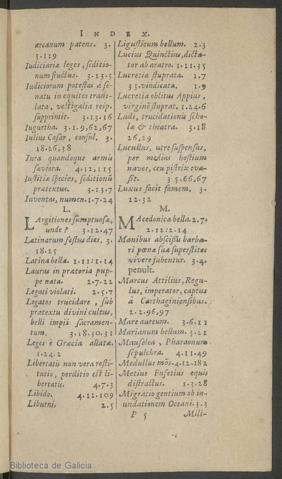 INDEX.
arcanum patens. 3.
3.129
Iudiciariæ leges, seditio-
num fructus. 3.13.3
Iudiciorum potestas à se-
natu in equites trans-
lata, vectigalia reip.
suppressit. 3.13.16
Iugurtha. 3.1.9,62,67
Iulius Cæsar, consul. 3.
18.26,38
Iura quandoque armis
sæviora. 4.12,115
Iustitia species, seditionis
prætextus. 3.13.7
Iuventas, numen. 1.7.24
L.
Largitiones sumptuosæ,
unde? 3.12.47
Latinarum festus dies. 3.
18.25
Latina bella. 1.11/1.14
Laurus in prætoria pup-
pe nata. 2.7.22
Legati violati. 2.5.7
Legatos trucidare, sub
prætextu divini cultus,
belli impii sacramen-
tum. 3.18.50,51
Leges è Græcia allatæ.
1.24.2
Libertatis non vera resti-
tutio, perditio est li-
bertatis. 4.7.3
Libido. 4.12.109
Liburni. 2.5
Ligusticum bellum. 2.3
Lucius Quinctius, dicta-
tor ab aratro. 1.11.35
Lucretia stuprata. 1.7
33. vindicata. 1.9
Lucretia oblitus Appius,
virginē stuprat. 1.24.6
Ludi, trucidationis scho-
læ & theatra. 3.18
26,29
Lucullus, utre suspensus,
per medias hostium
naves, ceu pistrix eva-
sit. 3.5.66,67
Luxus fecit famem. 3.
12.32
M.
Macedonica bella. 2.7.
2.12/2.14
Manibus abscissis barba-
ri pœna suâ superstites
vivere jubentur. 3.4.
penult.
Marcus Attilius, Regu-
lus, imperator, captus
à Carthaginiensibus.
2.2.96,97
Mare aureum. 3.6.12
Marianum bellum. 3.21
Mausolea, Pharaonum
sepulchra. 4.11.49
Medullus mōs. 4.12.182
Metius Fufetius equis
distractus. 1.3.28
Migratio gentium ob in-
undationem Oceani. 3.3
P 5
Mili-
Biblioteca de Galicia